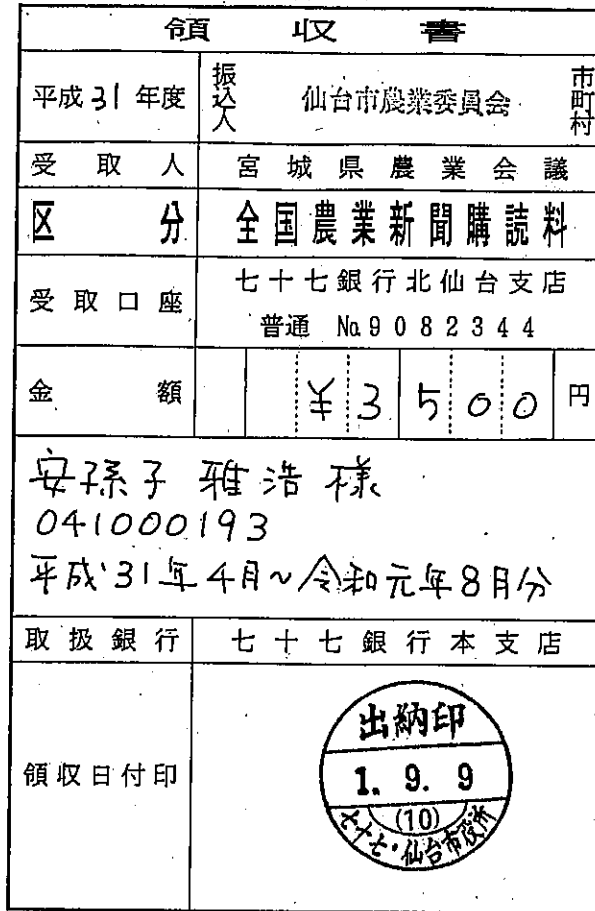 領収書
平成31年度 振込人 仙台市農業委員会 市町村
受取人 宮城県農業会議
区分 全国農業新聞購読料
受取口座 七十七銀行北仙台支店
普通 No.9082344
金額 ¥3500円
安孫子 雅浩 様
041000193
平成31年4月~令和元年8月分
取扱銀行 七十七銀行本支店
領収日付印
出納印
1. 9. 9
(10)
七十七・仙台市役所